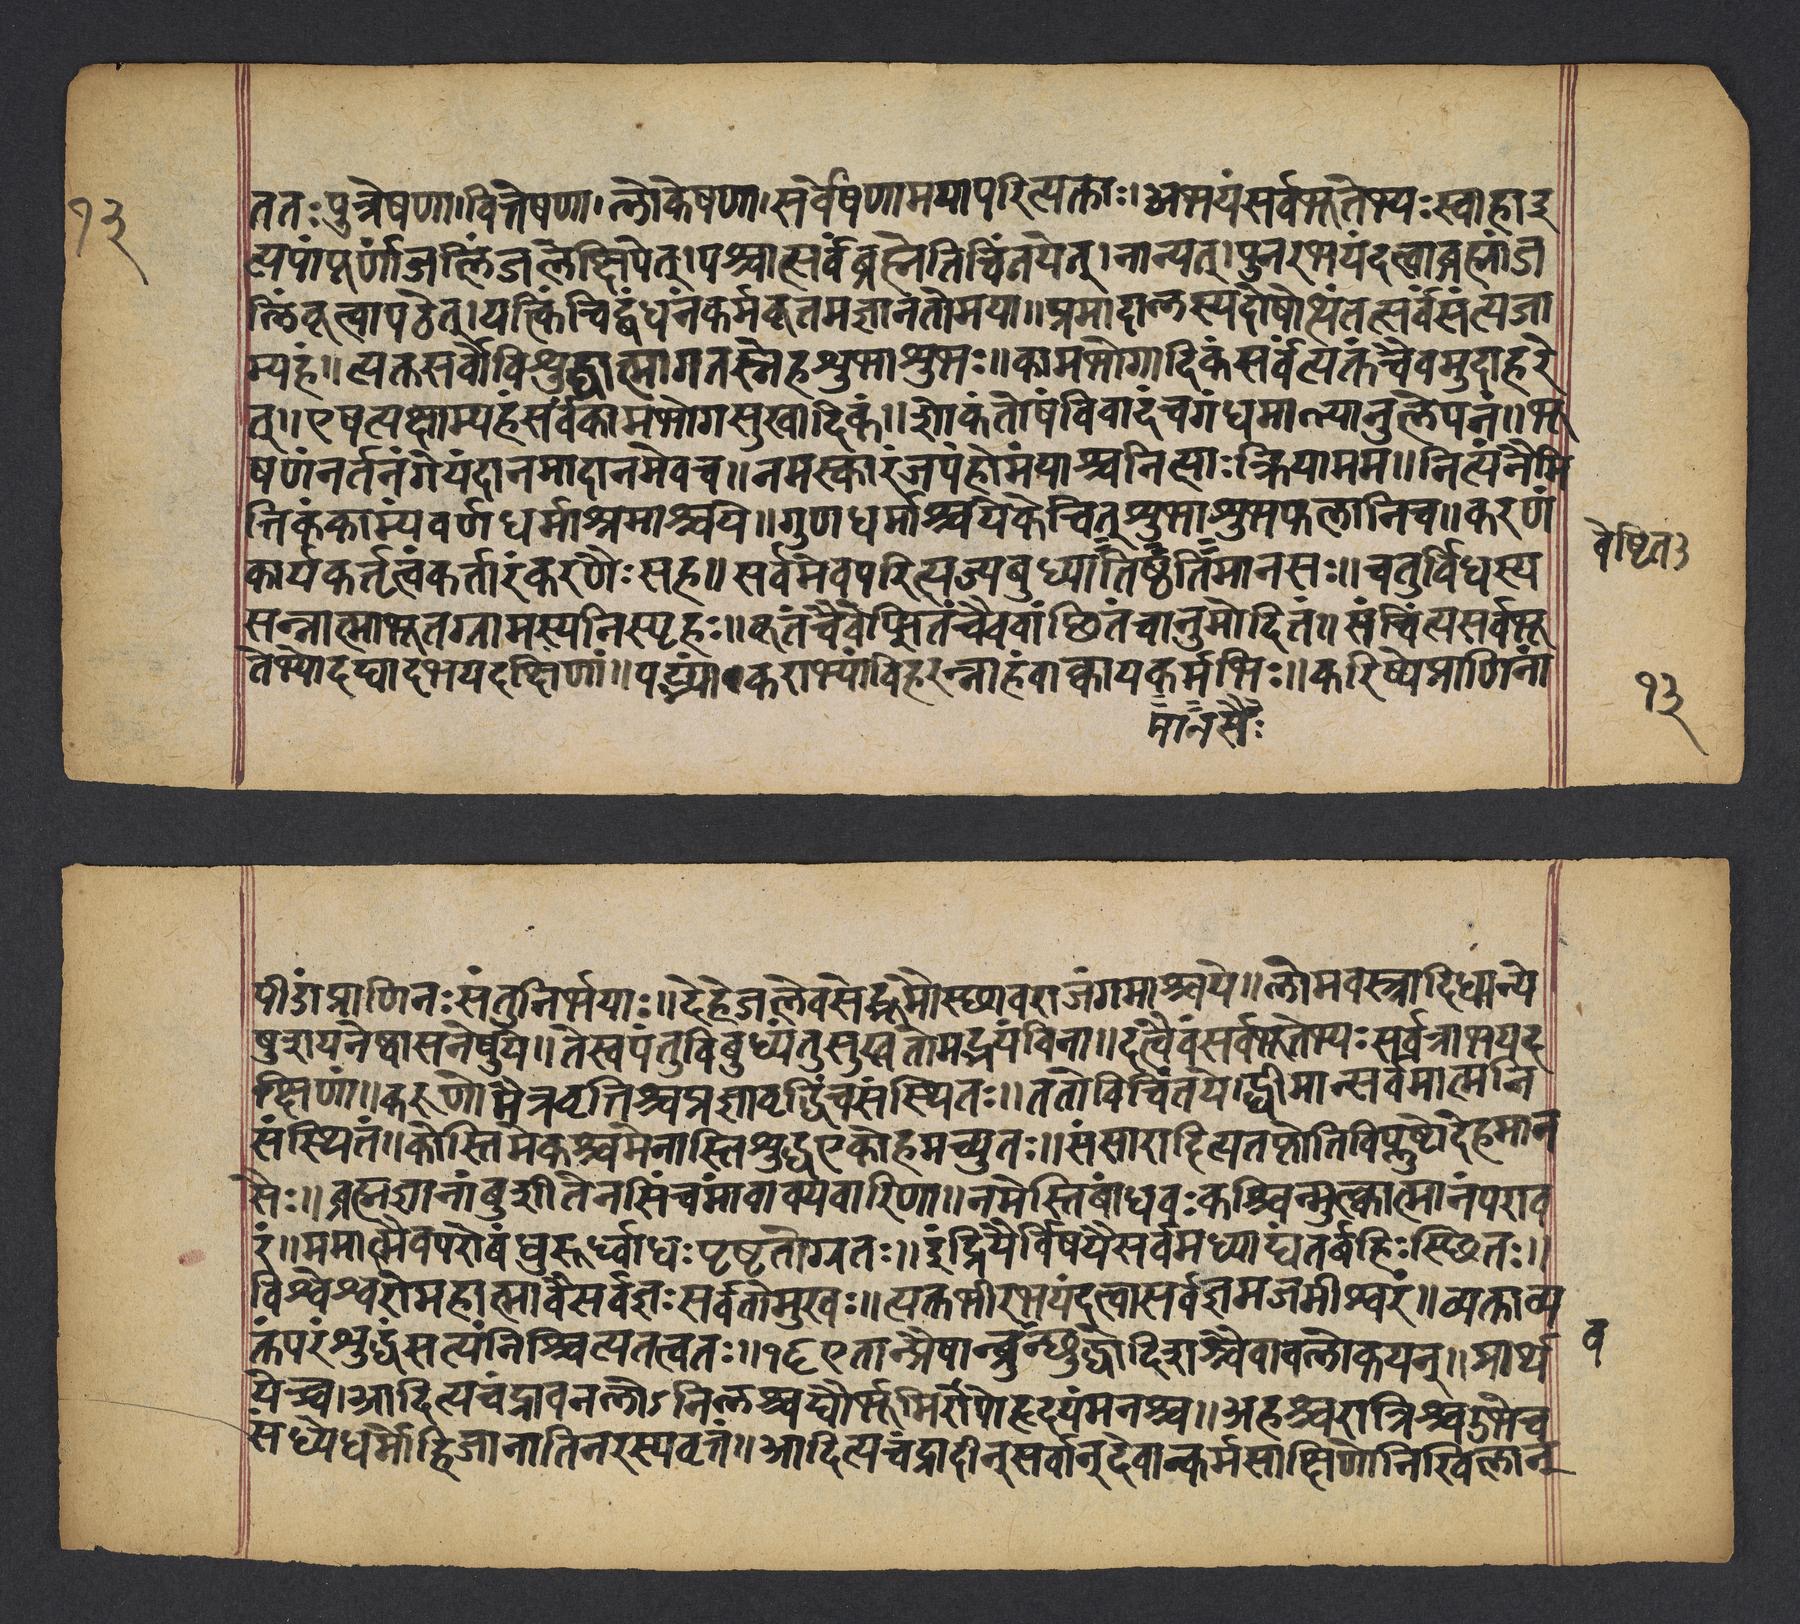 १३
ततःपुत्रेषणा।वित्तेषणा।लोकेषणा।सर्वेषणामयापरित्यक्ताः।अभयंसर्वभूतेभ्यःस्वाहाइ
त्यपांपूर्णांजलिंजलेक्षिपेत्।पश्चात्सर्वंब्रह्मेतिचिंतयेत्।नान्यत्।पुनरभयंदत्वाब्रह्मांज
लिंकृत्वापठेत्।यत्किंचिद्बंधनंकर्मकृतमज्ञानतोमया॥प्रमादालस्यदोषोत्थंतत्सर्वंसंत्यजा
म्यहं॥त्यक्तसर्वोविशुद्धात्मागतस्नेहशुभाशुभः॥कामभोगादिकंसर्वंत्यक्तंचैवमुदाहरे
त्॥एषत्यक्षाम्यहंसर्वंकामभोगसुखादिकं॥शोकंतोषंविवादंचगंधमाल्यानुलेपनं॥भू
षणंनर्तनंगेयंदानमादानमेवच॥नमस्कारंजपंहोमंयाश्चनित्याःक्रियामम॥नित्यंनैमि
त्तिकंकाम्यंवर्णधर्माश्रमाश्चये॥गुणधर्माश्चयेकेचित्शुभाशुभफलानिच॥करणं
कार्यकर्तृत्वंकर्तारंकरणैःसह॥सर्वमेवपरित्यज्यबुध्यातिष्ठतिमानसः॥चतुर्विधस्य
वेष्टित३
सन्नात्माभूतग्रामस्यनिस्पृहः॥कृतंचैवेप्सितंचैववांछितंचानुमोदितं॥संचिंत्यसर्वभू
तेभ्योदद्यादभयदक्षिणां॥पद्भ्यांकराभ्यांविहरन्नाहंवाक्कायकर्मभिः॥करिष्येप्राणिनां
मानसैः
१३
पीडांप्राणिनःसंतुनिर्भयाः॥देहेजलेवसेद्भूमौस्थावराजंगमाश्चये॥लोमवस्त्रादिधान्ये
षुशयनेष्वासनेषुये॥तेस्वपंतुविबुध्यंतुसुखंतोमद्भयंविना॥दत्वैवंसर्वभूतेभ्यःसर्वत्राभयद
क्षिणां॥करुणोमैत्रवृत्तिश्चप्रज्ञावृद्धिंचसंस्थितः॥ततोविचिंतयेद्धीमान्सर्वमात्मनि
संस्थितं॥कोस्तिमेकश्चमेनास्तिशुद्धएकोहमच्युतः॥संसारादित्यतप्तोतिविप्लुष्येदेहमान
सैः॥ब्रह्मज्ञानांबुशीतेनसिंचमांवाक्यवारिणा॥नमेस्तिबांधवःकश्चिन्मुत्कात्मानंपराव
रं॥ममात्मैवपरोबंधुरूर्ध्वाधःपृष्टतोग्रतः॥इंद्रियैर्विषयैसर्वमध्याद्यंतर्बहिःस्थितः॥
विश्वेश्वरोमहात्मावैसर्वज्ञःसर्वतोमुखः॥त्यक्तभीरभयंदत्वासर्वज्ञमजमीश्वरं॥व्यक्ताव्य
क्तंपरंशुद्धंसत्यंनिश्चित्यतत्वतः॥१६एतान्प्रैषान्ब्रुवन्छुद्धोदिशश्चैवावलोकयन्॥प्रार्थ
व
येच्च।आदित्यचंद्रावनलोऽनिलश्चद्यौर्भूमिरापोहृदयंमनश्च॥अहश्चरात्रिश्चउभेच
संध्येधर्मोहिजानातिनरस्यवृत्तं॥आदित्यचंद्रादीन्सर्वान्देवान्कर्मसाक्षिणोनिखिलान्